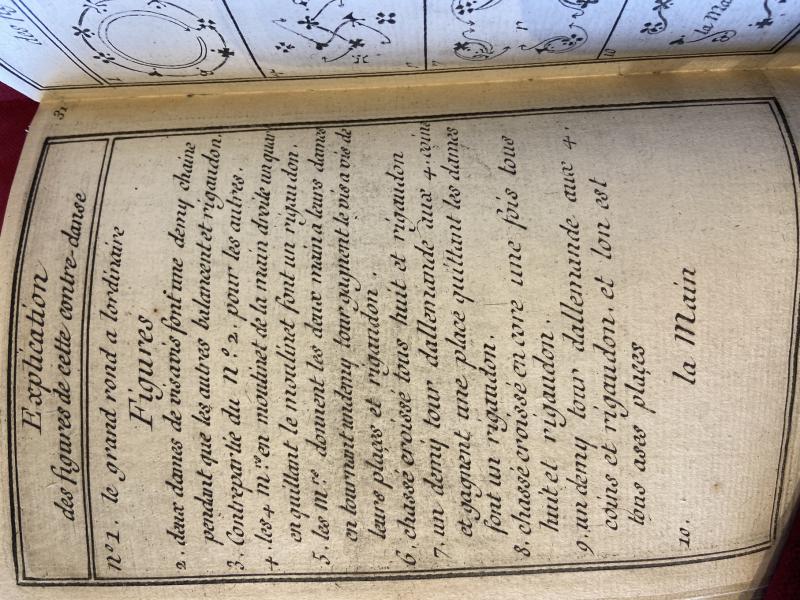 31
Explication
des figures de cette contre-danse
n.º 1. le grand rond a lordinaire
Figures
2. deux dames de visavis font une demy chaine
pendant que les autres balancent et rigaudon.
3. Contrepartie du n.º 2. pour les autres.
4. les 4 m.rs en moulinet de la main droite un quar
en quittant le moulinet font un rigaudon.
5. les m.rs donnent les deux main a leurs dames
en tournant un demy tour gagnent le vis a vis de
leurs plaçes et rigaudon.
6. chassé croissé tous huit et rigaudon
7. un demy tour dallemande aux 4. coins
et gagnent une place quittant les dames
font un rigaudon.
8. chassé croissé encore une fois tous
huit et rigaudon.
9. un demy tour dallemande aux 4.
coins et rigaudon. et lon est
tous a ses plaçes
10. la Main
la Main